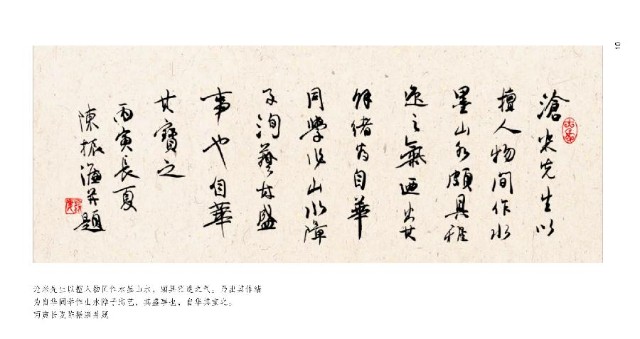 滄米先生以
擅人物间作水
墨山水頗具雅
逸之氣迺出其
餘绪为自華
同學作山水障
子洵藝林盛
事也自華
其寶之
丙寅長夏
陳振濂并題
沧米先生以擅人物间作水墨山水，颇具雅逸之气。乃出其余绪
为自华同学作山水障子洵艺，其盛事也。自华其宝之。
丙寅长夏陈振濂并题